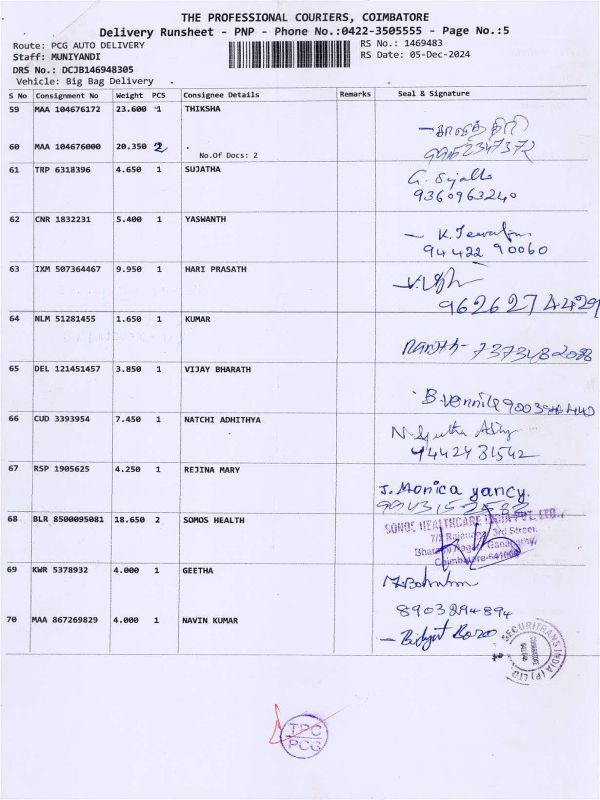 THE PROFESSIONAL COURIERS, COIMBATORE
Delivery Runsheet - PNP - Phone No.:0422-3505555 - Page No.:5
Route: PCG AUTO DELIVERY RS No.: 1469483
Staff: MUNIYANDI RS Date: 05-Dec-2024
DRS No.: DCJB146948305
Vehicle: Big Bag Delivery
S No Consignment No Weight PCS Consignee Details Remarks Seal & Signature
59 MAA 104676172 23.600 1 THIKSHA
60 MAA 104676000 20.350 2 .
No.Of Docs: 2
9952347372
61 TRP 6318396 4.650 1 SUJATHA
9360963240
62 CNR 1832231 5.400 1 YASWANTH
94422 90060
63 IXM 507364467 9.950 1 HARI PRASATH
9626274429
64 NLM 51281455 1.650 1 KUMAR
65 DEL 121451457 3.850 1 VIJAY BHARATH
66 CUD 3393954 7.450 1 NATCHI ADHITHYA
9442431542
67 RSP 1905625 4.250 1 REJINA MARY
J. Monica yancy.
68 BLR 8500095081 18.650 2 SOMOS HEALTH
3rd Street,
69 KWR 5378932 4.000 1 GEETHA
8903294894
70 MAA 867269829 4.000 1 NAVIN KUMAR
SECURITRANS INDIA (P) LTD
TPC
PCG